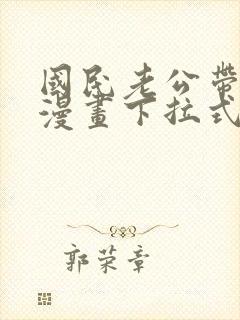 國民老公帶
漫畫下拉式
郭荣章